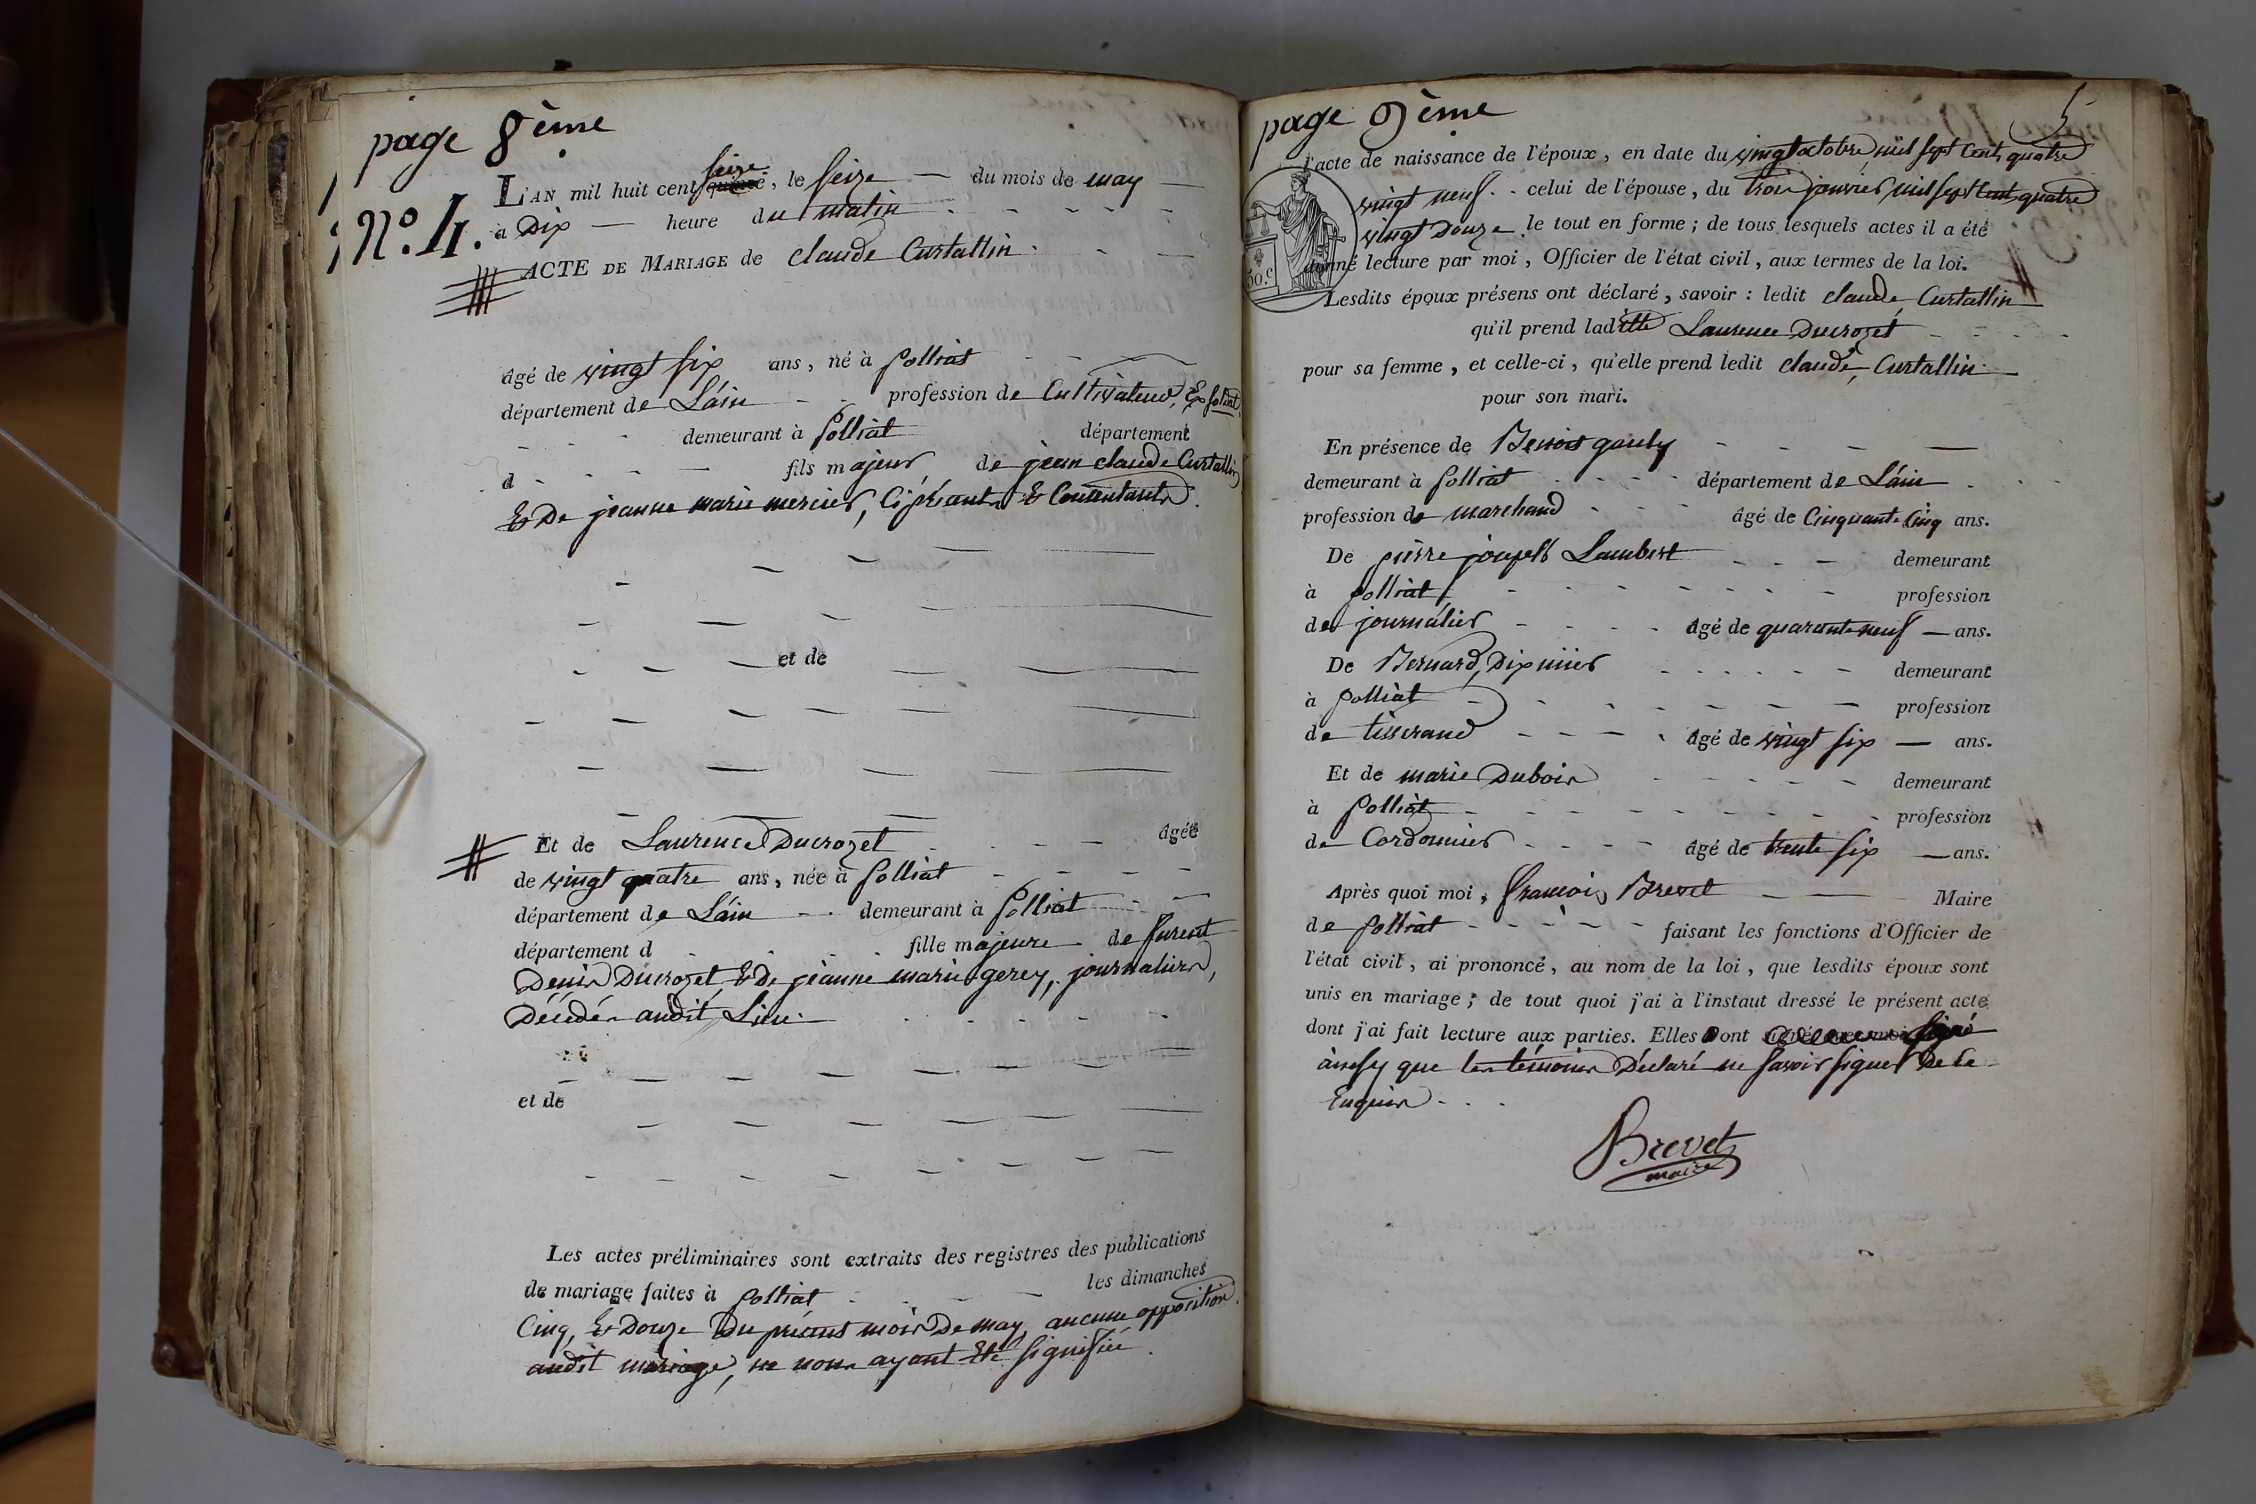 page 8ème
N.º 4.
L'AN mil huit cent quinze seize, le seize du mois de may
a Dix heure du matin
ACTE DE MARIAGE de claude Curtallin
âgé de vingt six ans, né à polliat
département de L'ain profession de Cultivateur, Ex soldat
demeurant à polliat département
d fils majeur de jean claude Curtallin
Et De jeanne marie mercier, Ci présents Et Consentants.
et de
Et de Laurence Ducrozet âgée
de vingt quatre ans, née à polliat
département de L'ain demeurant à polliat
département d fille majeure de furent
Denis Ducrozet Et De jeanne marie gerey, journaliers,
Décédés audit Lieu.
et de
Les actes préliminaires sont extraits des registres des publications
de mariage faites à polliat les dimanches
Cinq, Et Douze Du présent mois De may, aucune opposition
audit mariage, ne nous ayant Eté signifiée.
page 9ème
5
l'acte de naissance de l'époux, en date du vingt octobre mil sept Cent quatre
vingt neuf celui de l'épouse, du trois janvier mil sept Cent quatre
vingt Douze le tout en forme; de tous lesquels actes il a été
donné lecture par moi, Officier de l'état civil, aux termes de la loi.
50.c
Lesdits époux présens ont déclaré, savoir : ledit claude Curtallin
qu'il prend ladite Laurence Ducrozet
pour sa femme, et celle-ci, qu'elle prend ledit claude Curtallin
pour son mari.
En présence de Benoit gauly
demeurant à polliat département de L'ain
profession de marchand âgé de Cinquante Cinq ans.
De pierre joseph Lambert demeurant
à polliat profession
de journalier âgé de quarante neuf ans.
De Bernard Dixmier demeurant
à polliat profession
de tisserand âgé de vingt six ans.
Et de marie Dubois demeurant
à polliat profession
de Cordonnier âgé de trente six ans.
Après quoi moi, françois Brevet Maire
de polliat faisant les fonctions d'Officier de
l'état civil, ai prononcé, au nom de la loi, que lesdits époux sont
unis en mariage; de tout quoi j'ai à l'instant dressé le présent acte
dont j'ai fait lecture aux parties. Elles ont
ainsy que les témoins Déclaré ne savoir signer De Ce
Enquis.
Brevet
maire